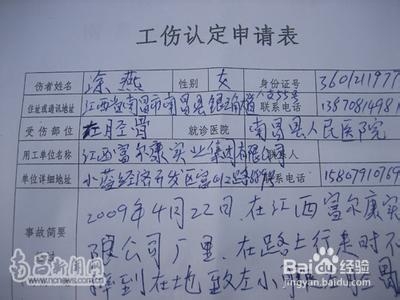 工伤认定申请表
伤者姓名 涂燕 性别 女 身份证号 360121197
住址或通讯地址 江西省南昌市南昌县 联系电话 138708149
受伤部位 左胫骨 就诊医院 南昌县人民医院
用工单位名称 江西富尔康实业集团有限公司 联系人
单位详细地址 小蓝经济开发区富山路 联系电话 15807910769
事故简要 2009年4月22日,在江西富尔康实
限公司厂里,在路上行走时不
摔到在地致左小 骨
南昌新闻网
www.ncnews.com.cn
Baidu百度经验
jingyan.baidu.com